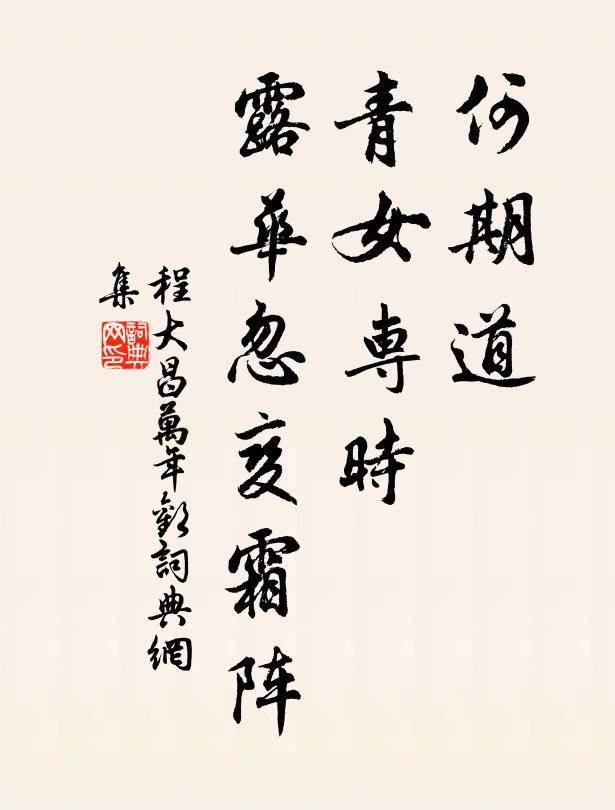 何期道
青女専時
露華忽变霜阵
程大昌萬年歡詞典網
集
詞典网印